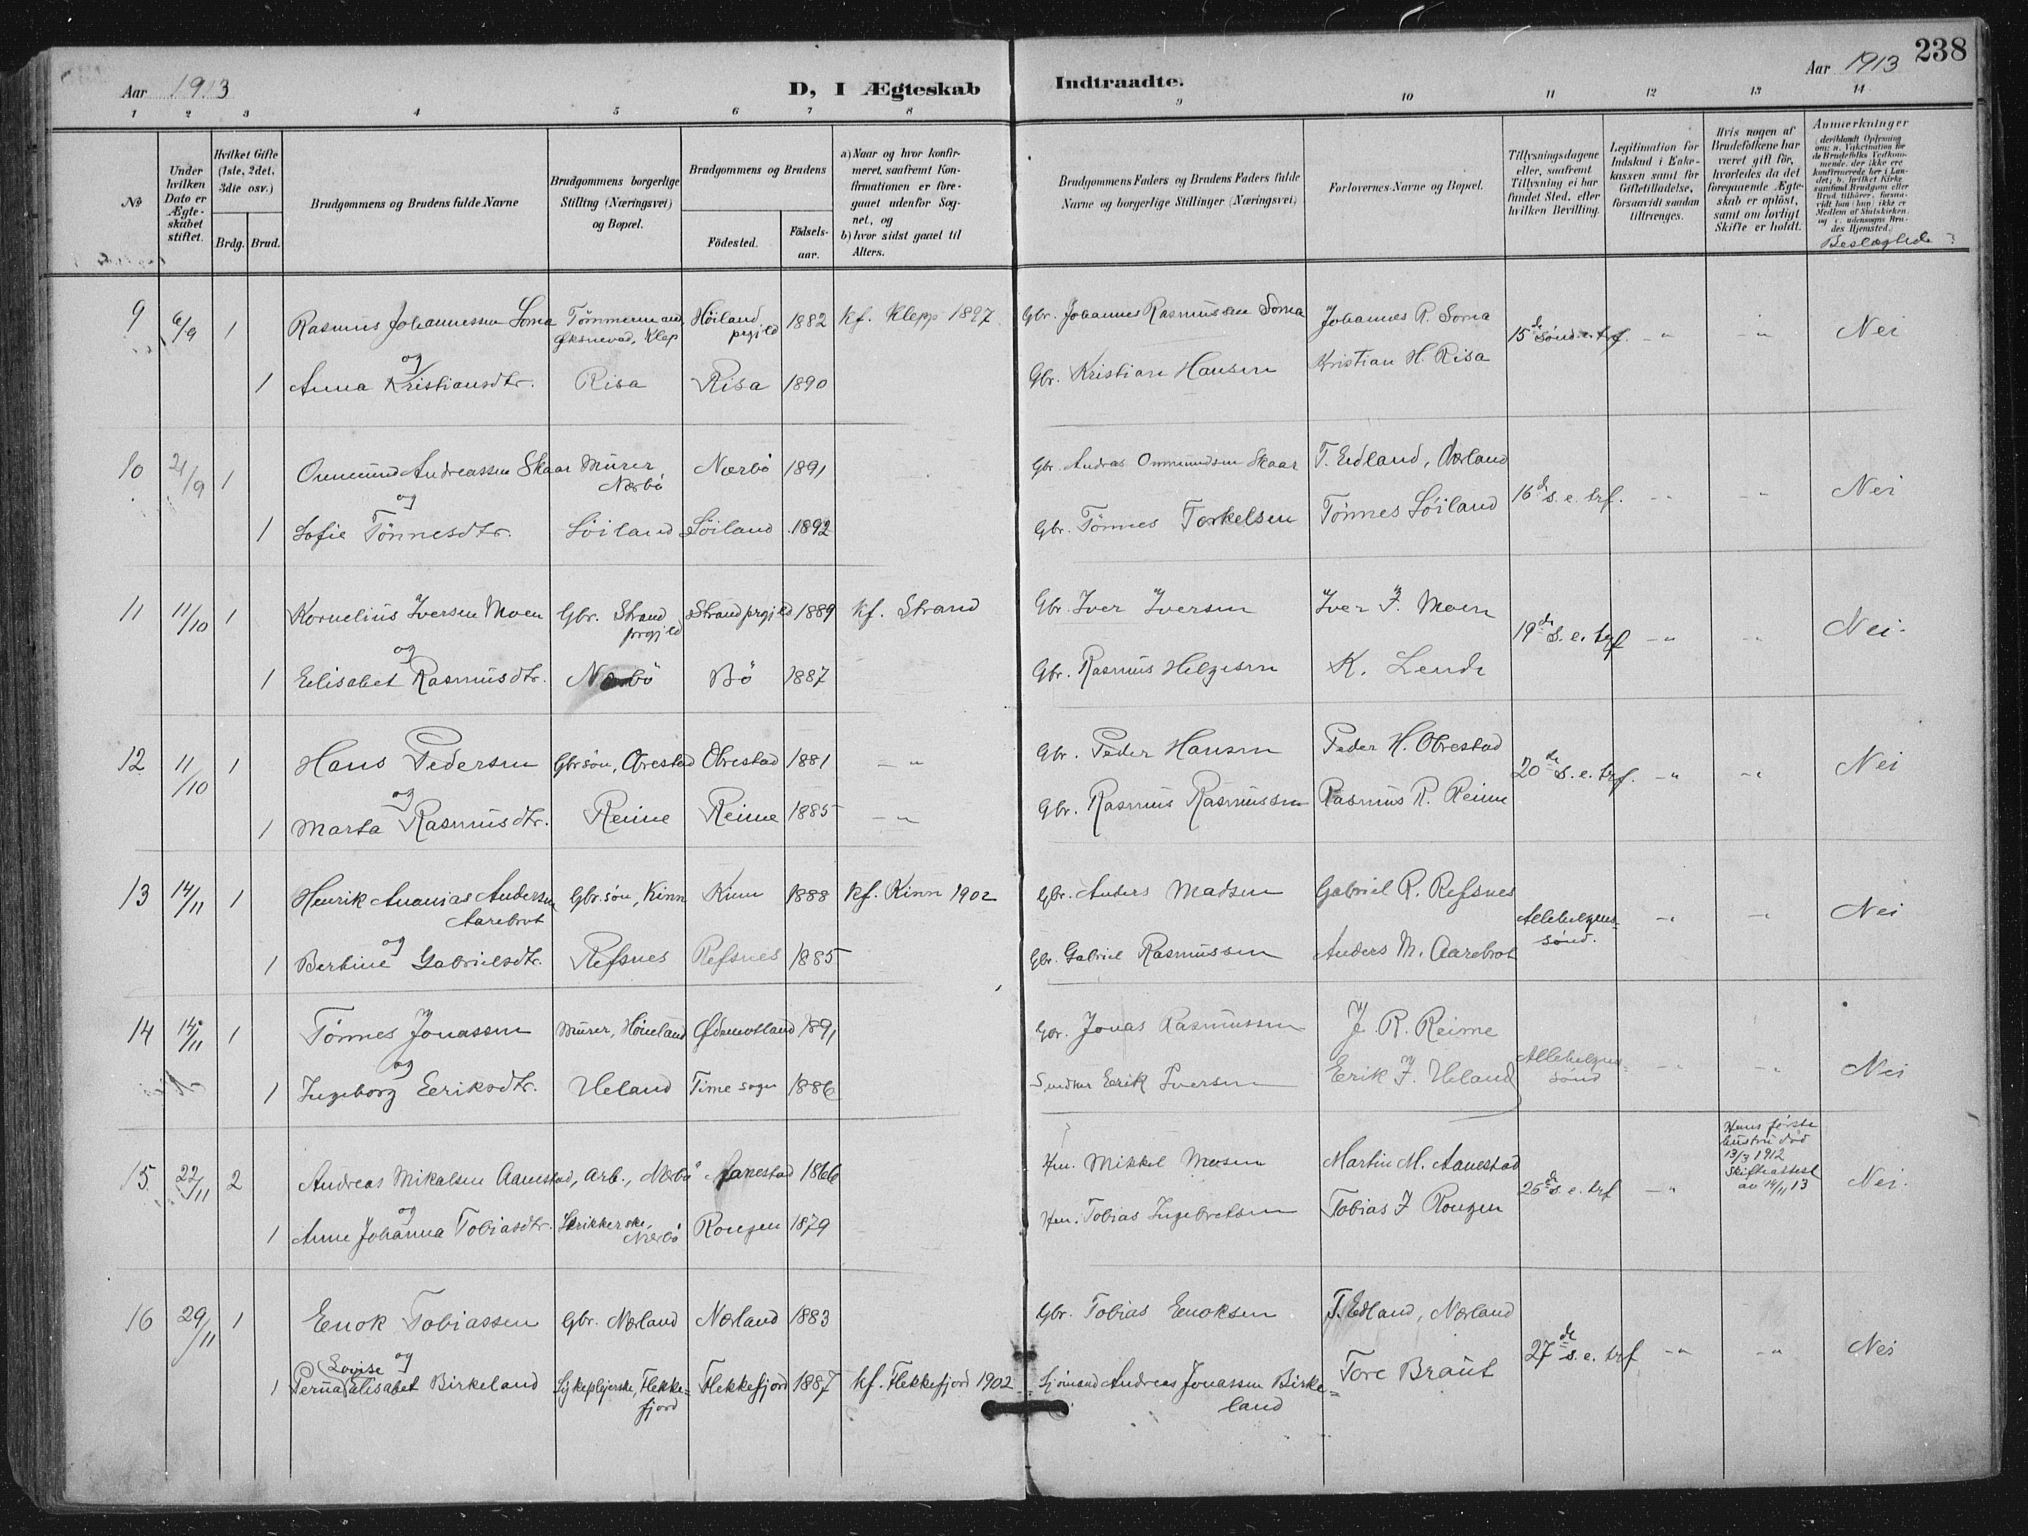 Aar 1913
D, I Ægteskab
Indtraadte.
Aar 1913
238
1 2 3 4 5 6 7 8 9 10 11 12 13 14
No
Under hvilken Dato er Ægteskabet stiftet.
Hvilket Gifte (1ste, 2det, 3die osv.)
Brdg. Brud.
Brudgommens og Brudens fulde Navne
Brudgommens borgerlige Stilling (Næringsvei) og Bopæl.
Brudgommens og Brudens
Fødested.
Fødsels-aar.
a) Naar og hvor konfirmeret, saafremt Konfirmationen er foregaaet udenfor Sognet, og
b) hvor sidst gaaet til Alters.
Brudgommens Faders og Brudens Faders fulde Navne og borgerlige Stillinger (Næringsvei)
Forlovernes Navne og Bopæl.
Tillysningsdagene eller, saafremt Tillysning ei har fundet Sted, efter hvilken Bevilling.
Legitimation for Indskud i Enkekassen samt for Giftetilladelse, forsaavidt saadan tiltrænges.
Hvis nogen af Brudefolkene har været gift før, hvorledes da det foregaaende Ægteskab er opløst, samt om lovligt Skifte er holdt.
Anmerkninger
(deriblandt Oplysning om: a. Vakcination for de Brudefolks Vedkommende, der ikke ere konfirmerede her i Landet; b. hvilket Kirkesamfund Brudgom eller Brud tilhører, forsaavidt han (hun) ikke er Medlem af Statskirken, og c. udensogns Brudes Hjemsted.)
Beslægtede?
9 6/9 1 Rasmus Johannessen Soma Tømmermand, Øksnevad, Klep Høiland prgjld 1882 kf. Klepp 1897. Gbr. Johannes Rasmussen Soma Johannes R. Soma 15de sønd. e. trf. -"- -"- Nei
og
1 Anna Kristiansdtr. Risa Risa 1890 Gbr. Kristian Hansen Kristian H. Risa
10 21/9 1 Ommund Andreassen Skaar Murer, Nærbø Nærbø 1891 Gbr. Andras Ommundsen Skaar T. Edland, Nærland 16de s. e. trf. -"- -"- Nei
og
1 Sofie Tønnesdtr. Søiland Søiland 1892 Gbr. Tønnes Torkelsen Tønnes Søiland
11 11/10 1 Kornelius Iversen Moen Gbr. Strand prgjld Strand prgjld 1889 kf. Strand Gbr. Iver Iversen Iver I. Moen 19de s. e. trf -"- -"- Nei.
og
1 Elisabet Rasmusdtr. Nærbø Bø 1887 Gbr. Rasmus Helgesen K. Lende
12 11/10 1 Hans Pedersen Gbrsøn, Obrestad Obrestad 1881 -"- Gbr. Peder Hansen Peder H. Obrestad 20de s. e. trf. -"- -"- Nei
og
1 Marta Rasmusdtr. Reime Reime 1885 -"- Gbr. Rasmus Rasmussen Rasmus R. Reime
13 14/11 1 Henrik Ananias Andersen Aarebrot Gbr.søn, Kinn Kinn 1888 kf. Kinn 1902 Gbr. Anders Madsen Gabriel R. Refsnes Allehelgens-sønd. -"- -"- Nei
og
1 Bertine Gabrielsdtr. Refsnes Refsnes 1885 Gbr. Gabriel Rasmussen Anders M. Aarebrot
14 14/11 1 Tønnes Jonassen Murer, Høiland Ødemotland 1891 Gbr. Jonas Rasmussen J. R. Reime Allehelgens-sønd -"- -"- Nei
og
1 Ingeborg Eeriksdtr. Ueland Time sogn 1886 Eerik Iversen Eerik I. Ueland
15 22/11 2 Andreas Mikalsen Aanestad, Arb., Nærbø Aanestad 1866 Hm. Mikkel Mosen Martin M. Aanestad 25de s. e. trf -"- Hans første hustru død 13/3 1912 Skifteattest av 14/11 13 Nei.
og
1 Anne Johanna Tobiasdtr. Strikkerske, Nærbø Rongen 1879 Hm. Tobias Ingebretsen Tobias I Rongen
16 29/11 1 Enok Tobiassen Gbr. Nærland Nærland 1883 Gbr. Tobias Enoksen T. Edland, Nærland 27de s. e. trf -"- -"- Nei
Lovise og
1 Perna Elisabet Birkeland Sykeplejerske, Flekkefjord Flekkefjord 1887 kf. Flekkefjord 1902 Sjømand Andreas Jonassen Birkeland Tore Braut